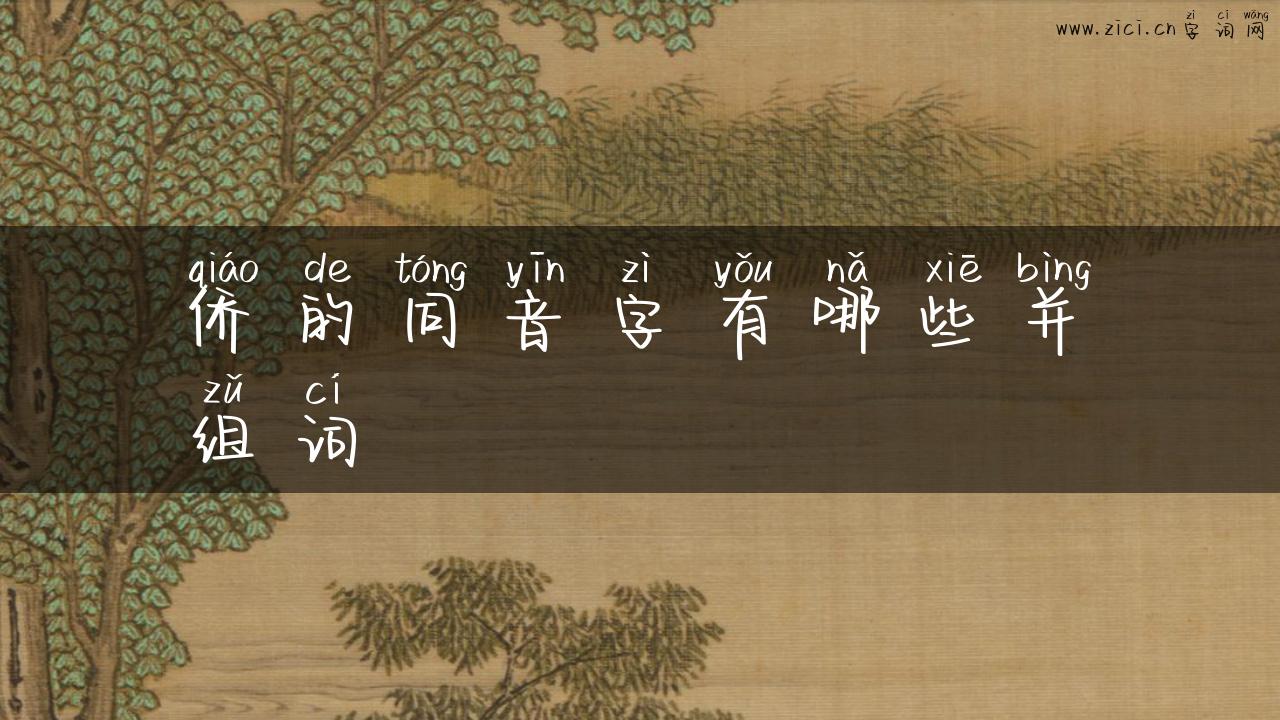 zì cí wǎng
www.zici.cn字词网
qiáo de tóng yīn zì yǒu nǎ xiē bìng
侨的同音字有哪些并
zǔ cí
组词